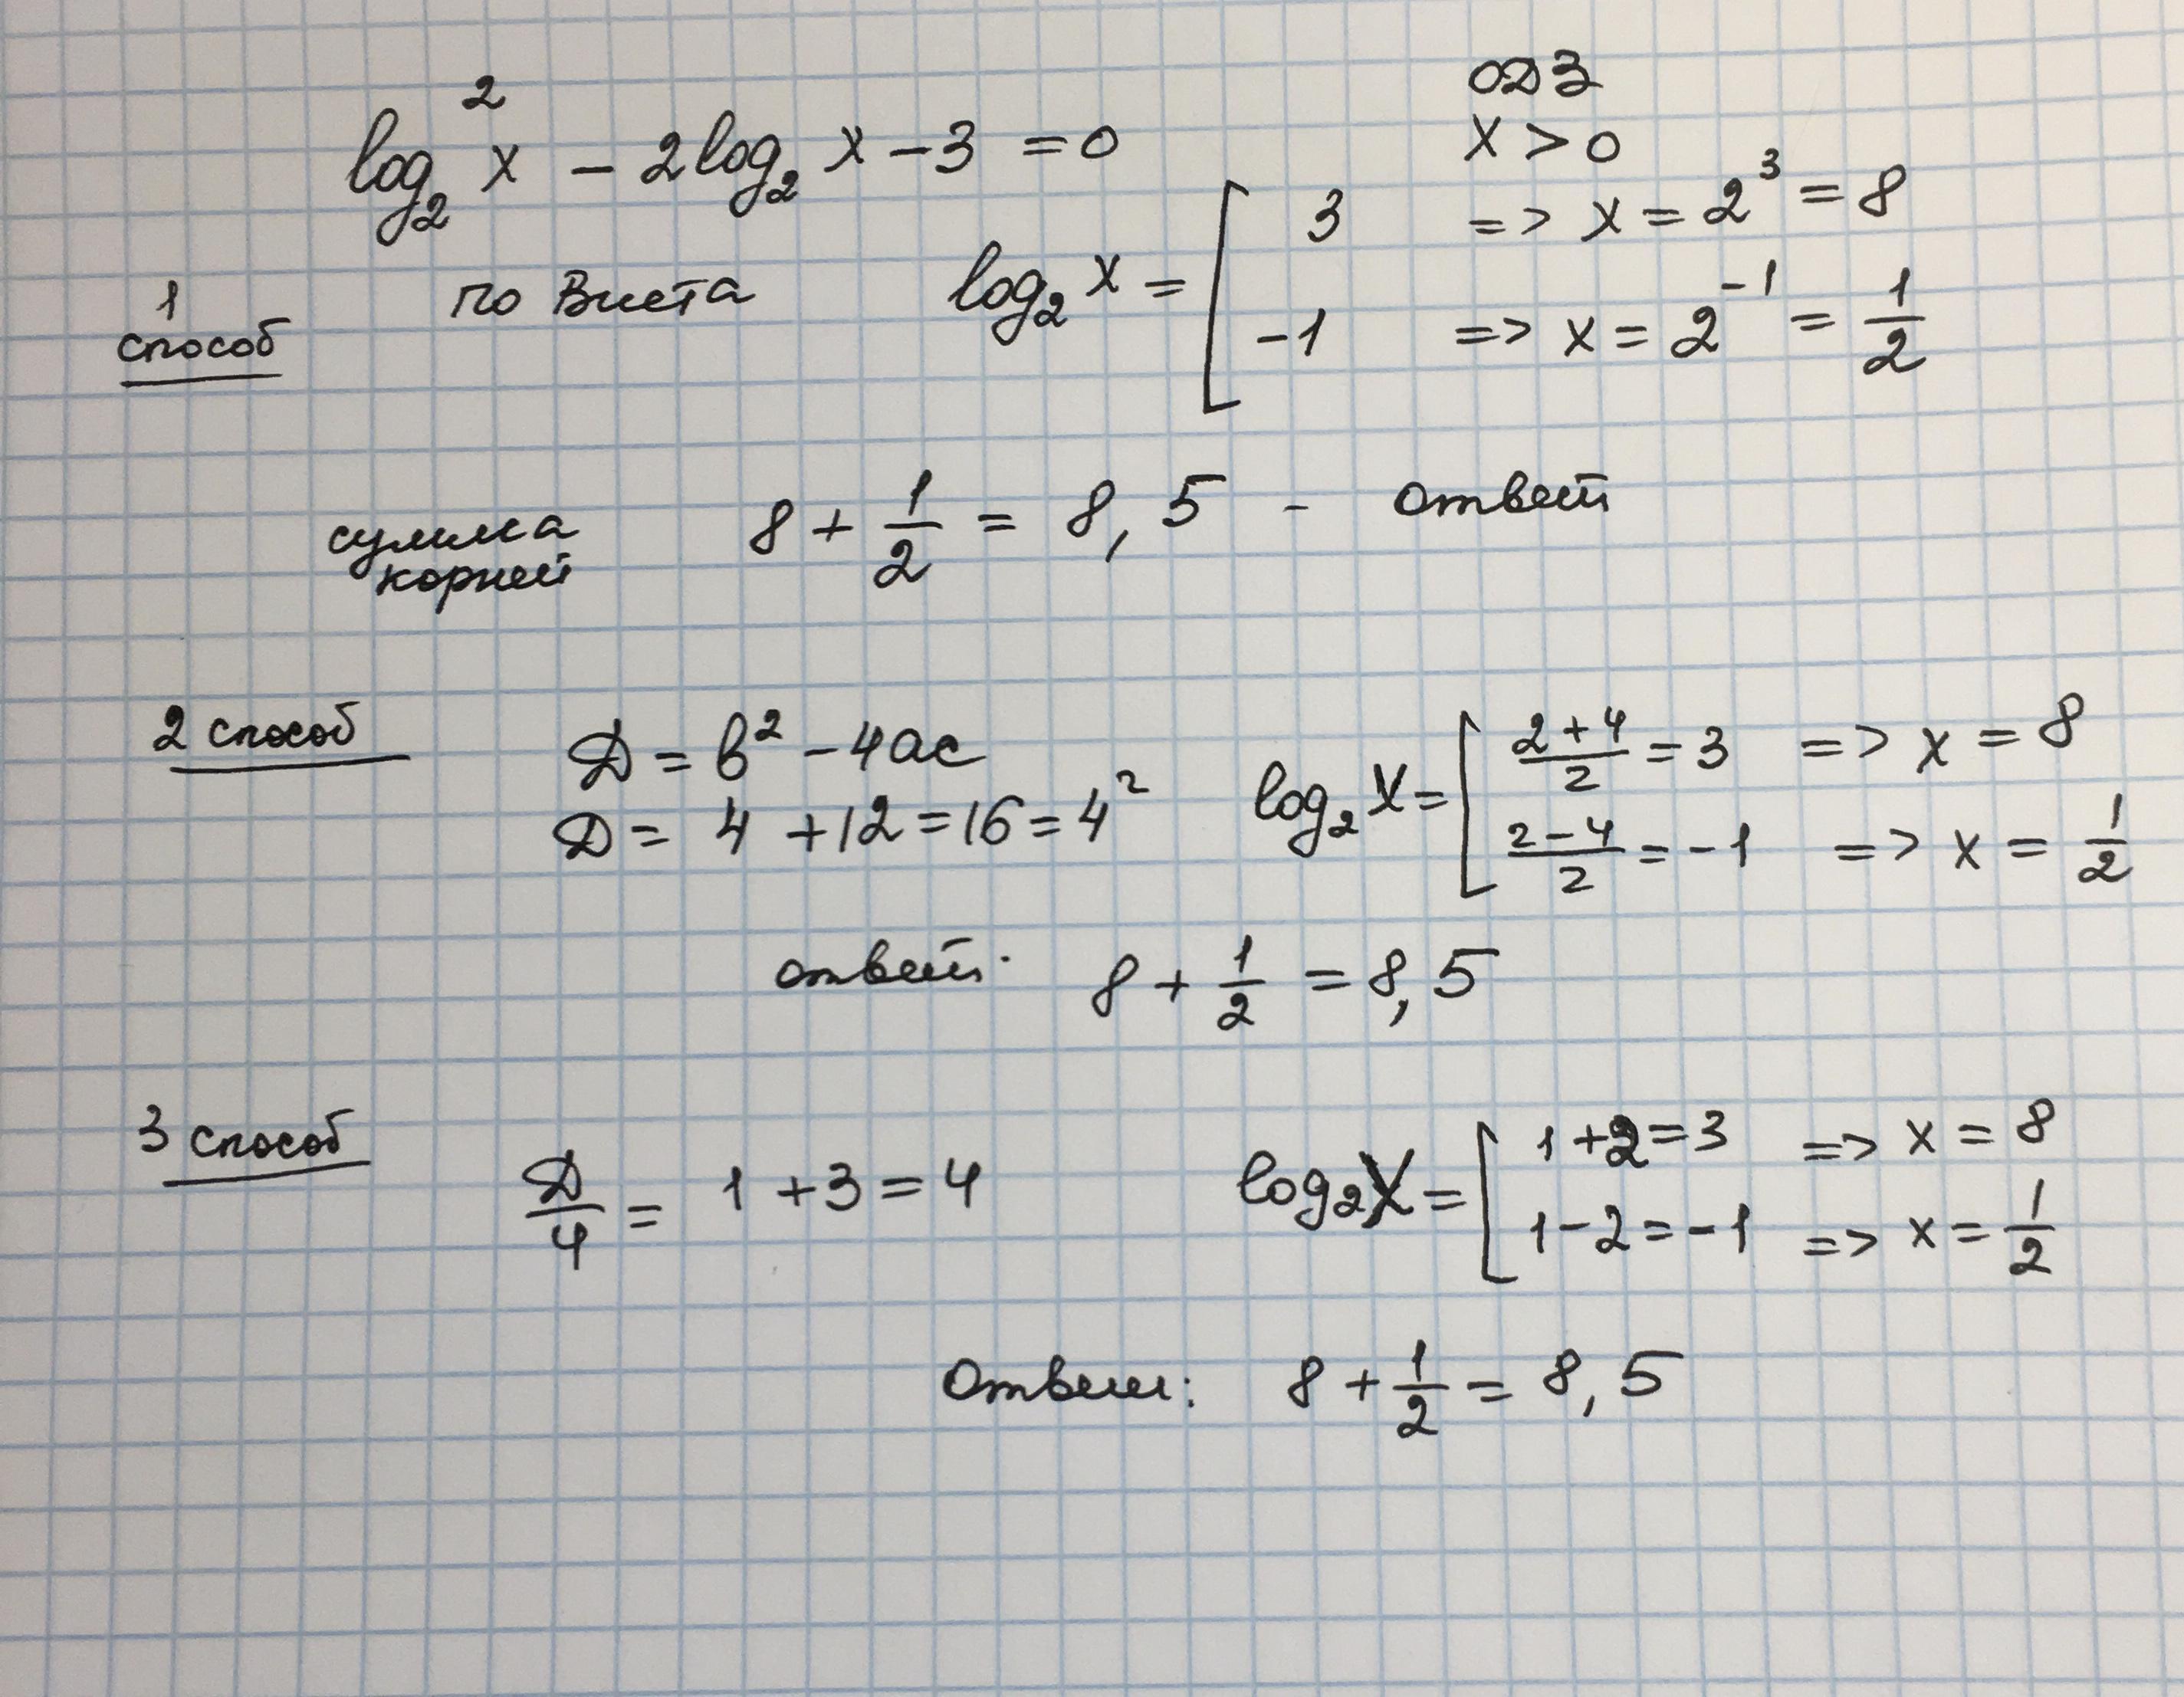 log₂²x − 2log₂x − 3 = 0
ОДЗ
x > 0
1 способ
по Виета log₂x = [ 3 => x = 2³ = 8
−1 => x = 2⁻¹ = 1/2
сумма корней 8 + 1/2 = 8,5 – ответ
2 способ
Д = b² − 4ac
Д = 4 + 12 = 16 = 4²
log₂x = [ (2+4)/2 = 3 => x = 8
(2−4)/2 = −1 => x = 1/2
ответ: 8 + 1/2 = 8,5
3 способ
Д/4 = 1 + 3 = 4
log₂x = [ 1 + 2 = 3 => x = 8
1 − 2 = −1 => x = 1/2
Ответ: 8 + 1/2 = 8,5